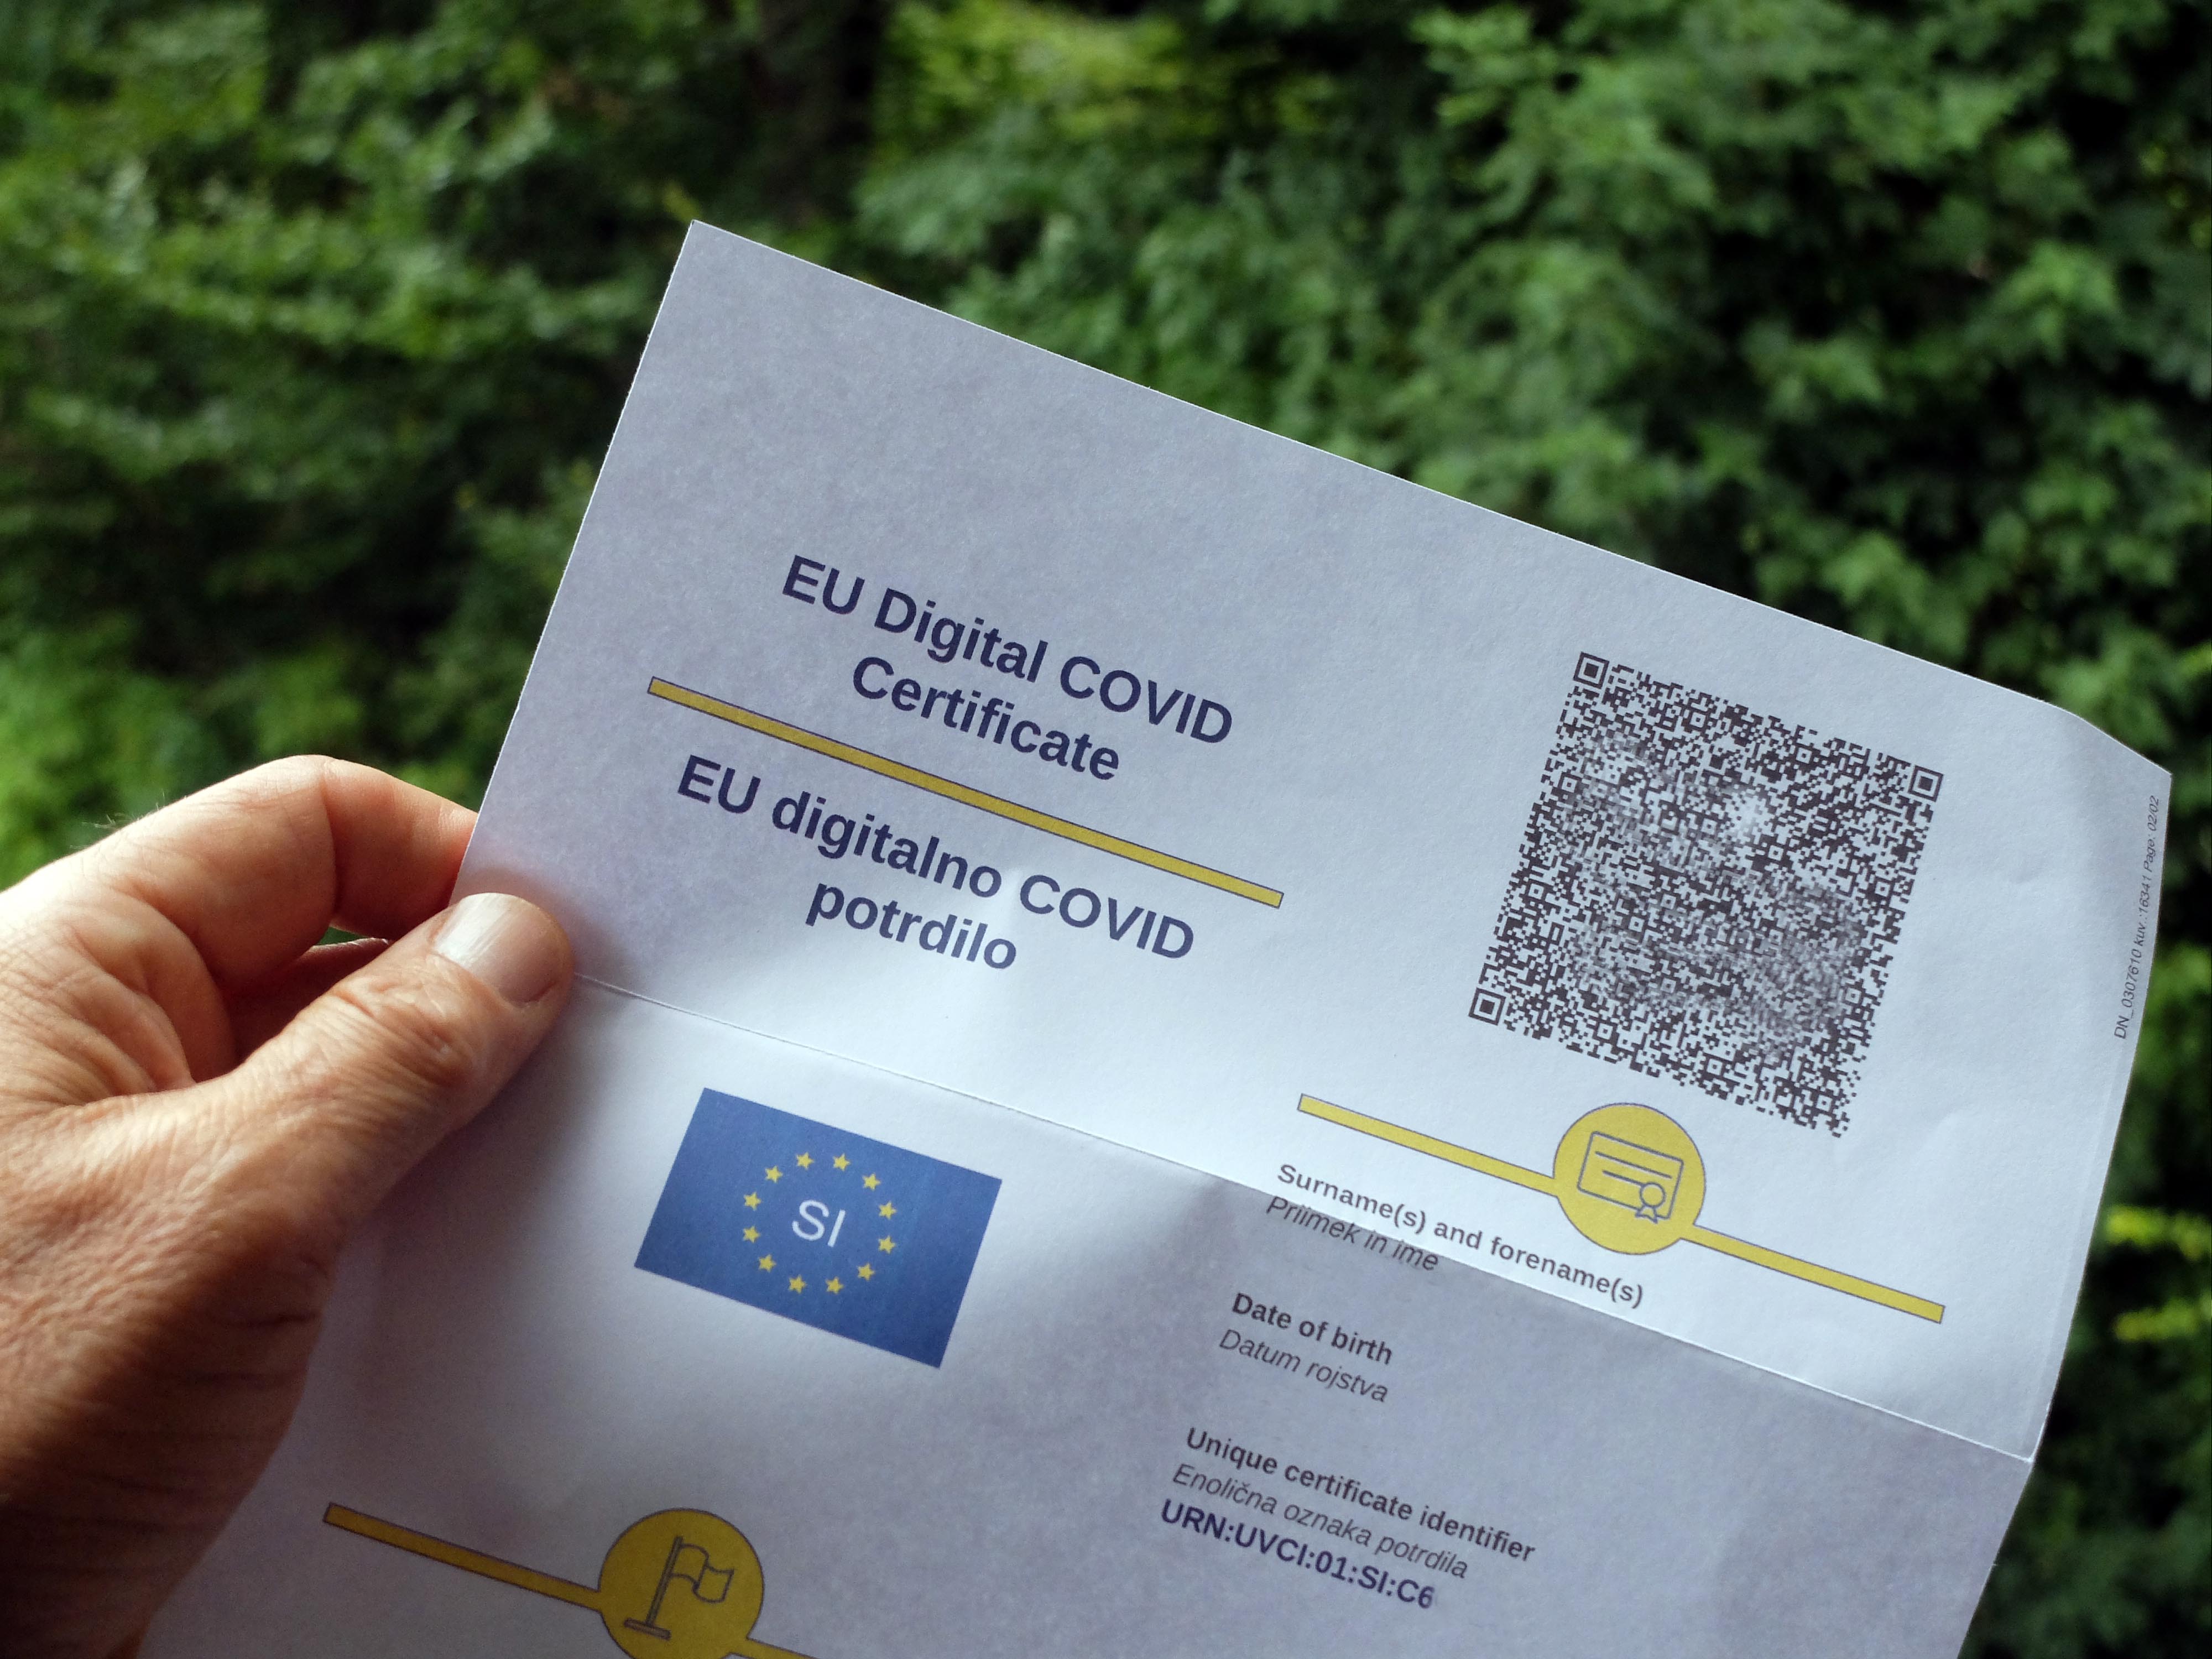 EU Digital COVID
Certificate
EU digitalno COVID
potrdilo
DN_0307610 kuv.:16341 Page: 02/02
SI
Surname(s) and forename(s)
Priimek in ime
Date of birth
Datum rojstva
Unique certificate identifier
Enolična oznaka potrdila
URN:UVCI:01:SI:C6